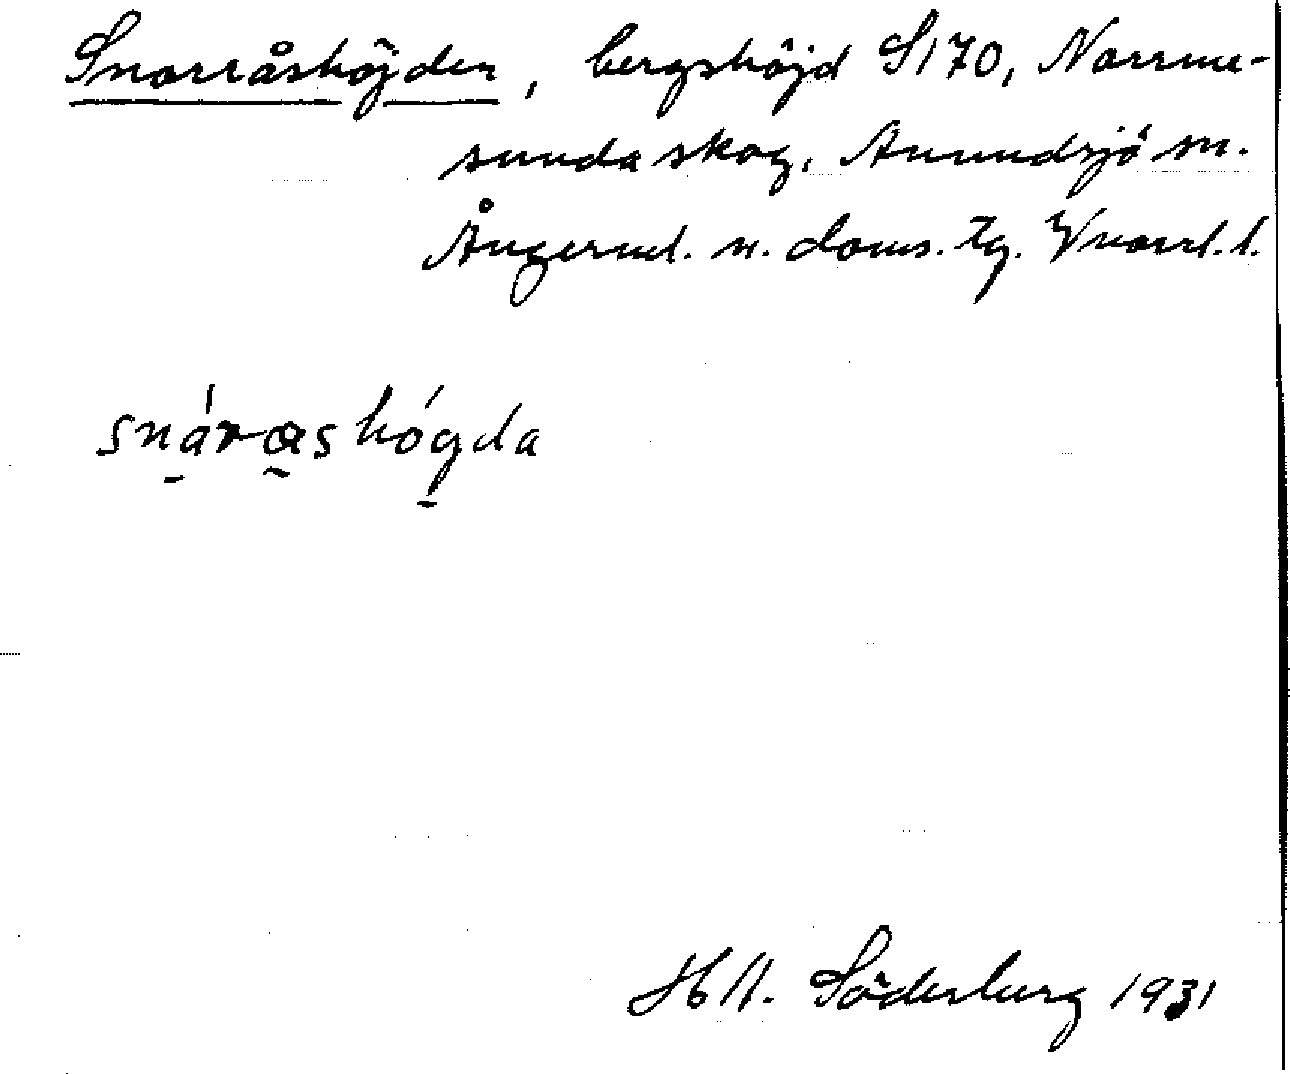 Snorråshöjden, bergshöjd S170, Norrme-
sunda skog, Anundsjö sn.
Ångerml. n. doms. tg. Vnorrl. l.
snárashógda
H. Söderberg 1931